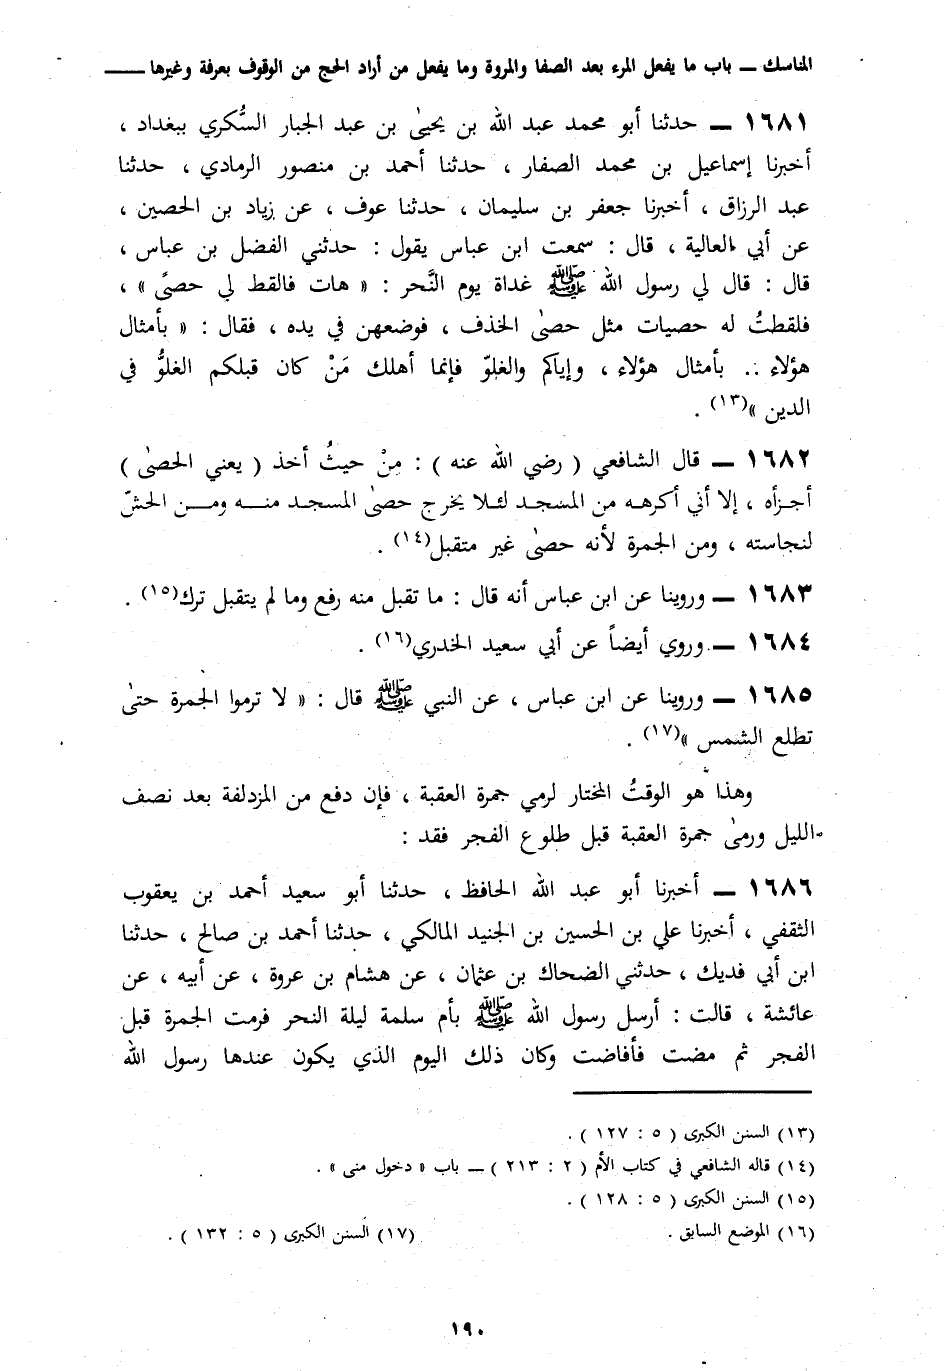 المناسك ـ باب ما يفعل المرء بعد الصفا والمروة وما يفعل من أراد الحج من الوقوف بعرفة وغيرها ـــ
١٦٨١ ـ حدثنا أبو محمد عبد الله بن يحيىٰ بن عبد الجبار السُّكري ببغداد ،
أخبرنا إسماعيل بن محمد الصفار ، حدثنا أحمد بن منصور الرمادي ، حدثنا
عبد الرزاق ، أخبرنا جعفر بن سليمان ، حدثنا عوف ، عن زياد بن الحصين ،
عن أبي العالية ، قال : سمعت ابن عباس يقول : حدثني الفضل بن عباس ،
قال : قال لي رسول الله ﷺ غداة يوم النَّحر : « هات فالقط لي حصىً » ،
فلقطتُ له حصيات مثل حصىٰ الخذف ، فوضعهن في يده ، فقال : « بأمثال
هؤلاء .. بأمثال هؤلاء ، وإياكم والغلوّ فإنما أهلك مَنْ كان قبلكم الغلوُّ في
الدين »(١٣) .
١٦٨٢ ـ قال الشافعي ( رضي الله عنه ) : مِنْ حيثُ أخذ ( يعني الحصىٰ )
أجزأه ، إلا أني أكرهه من المسجد لئلا يخرج حصىٰ المسجد منه ومن الحشّ
لنجاسته ، ومن الجمرة لأنه حصىٰ غير متقبل(١٤) .
١٦٨٣ ـ وروينا عن ابن عباس أنه قال : ما تقبل منه رفع وما لم يتقبل ترك(١٥) .
١٦٨٤ ـ وروي أيضاً عن أبي سعيد الخدري(١٦) .
١٦٨٥ ـ وروينا عن ابن عباس ، عن النبي ﷺ قال : « لا ترموا الجمرة حتىٰ
تطلع الشمس »(١٧) .
وهذا هو الوقتُ المختار لرمي جمرة العقبة ، فإن دفع من المزدلفة بعد نصف
الليل ورمىٰ جمرة العقبة قبل طلوع الفجر فقد :
١٦٨٦ ـ أخبرنا أبو عبد الله الحافظ ، حدثنا أبو سعيد أحمد بن يعقوب
الثقفي ، أخبرنا علي بن الحسين بن الجنيد المالكي ، حدثنا أحمد بن صالح ، حدثنا
ابن أبي فديك ، حدثني الضحاك بن عثمان ، عن هشام بن عروة ، عن أبيه ، عن
عائشة ، قالت : أرسل رسول الله ﷺ بأم سلمة ليلة النحر فرمت الجمرة قبل
الفجر ثم مضت فأفاضت وكان ذلك اليوم الذي يكون عندها رسول الله
(١٣) السنن الكبرى ( ٥ : ١٢٧ ) .
(١٤) قاله الشافعي في كتاب الأم ( ٢ : ٢١٣ ) ـ باب « دخول منى » .
(١٥) السنن الكبرى ( ٥ : ١٢٨ ) .
(١٦) الموضع السابق . (١٧) السنن الكبرى ( ٥ : ١٣٢ ) .
١٩٠